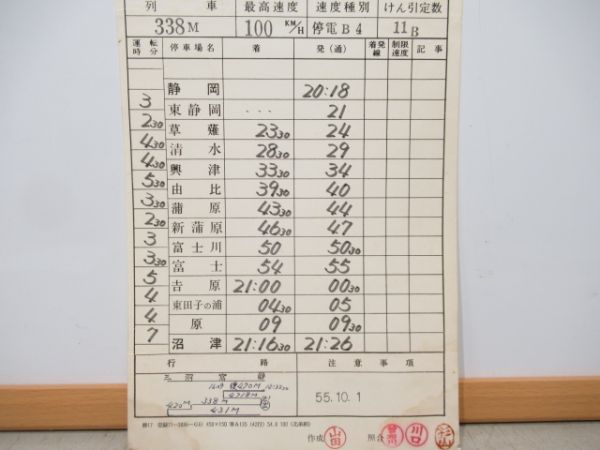 列車 最高速度 速度種別 けん引定数
338M 100 KM/H 停電B4 11B
運転時分 停車場名 着 発(通) 着発線 制限速度 記事
静岡 20:18
3 東静岡 ... 21
2 30 草薙 23 30 24
4 30 清水 28 30 29
4 30 興津 33 30 34
5 30 由比 39 30 40
3 30 蒲原 43 30 44
2 30 新蒲原 46 30 47
3 富士川 50 50 30
3 30 富士 54 55
5 吉原 21:00 00 30
4 東田子の浦 04 30 05
4 原 09 09 30
7 沼津 21:16 30 21:26
行路 注意事項
沼
420M 338M
431M
55.10.1
作成 山田 照合 川口 杉山